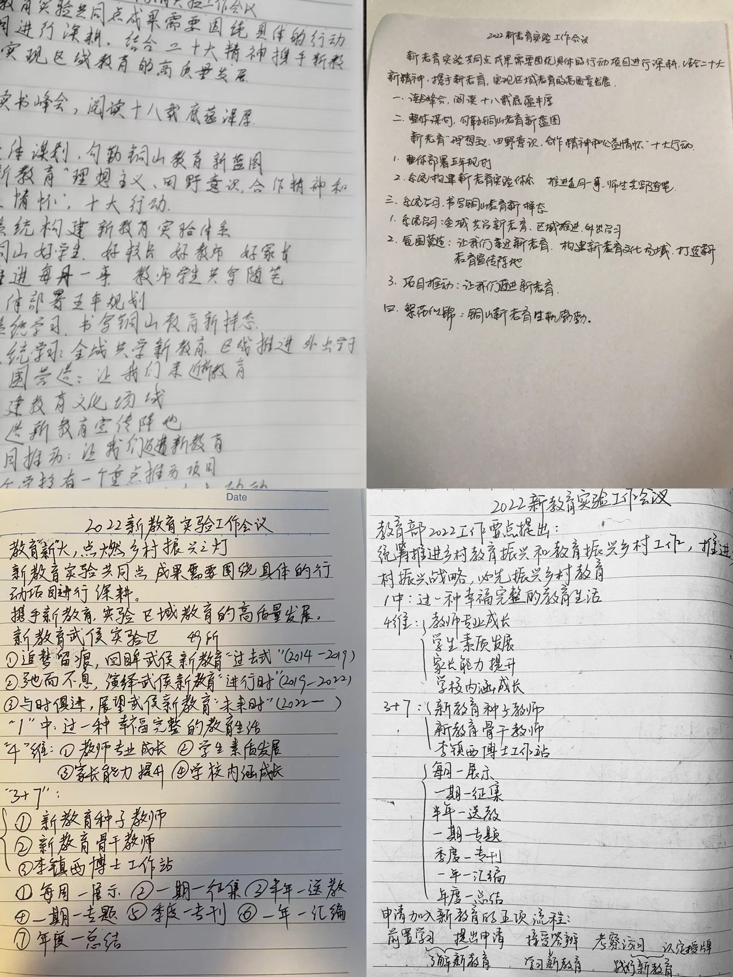 教育实验共同点成果需要围绕具体的行动
目进行深耕，结合二十大精神携手新教
实现区域教育的高质量发展
读书峰会，阅读十八载底蕴深厚
体谋划，勾勒铜山教育新蓝图
新教育“理想主义、田野意识、合作精神和
情怀”，十大行动
系统构建新教育实验体系
同山好学生 好校长 好教师 好家长
推进每月一事 教师学生共写随笔
体部署五年规划
系统学习，书写铜山教育新样态
统学习：全域共学新教育，区域推进 外出学习
围营造：让我们走近新教育
建教育文化场域
造新教育宣传阵地
目推动：让我们迈进新教育
个学校有一个重点推动项目
2022新教育实验工作会议
新教育实验共同点成果需要围绕具体的行动项目进行深耕，结合二十大
新精神，携手新教育，实现区域教育的高质量发展
一、读书峰会，阅读十八载底蕴丰厚
二、整体谋划，勾勒铜山教育新蓝图
新教育“理想主义、田野意识、合作精神和公益情怀”十大行动
1. 整体部署五年规划
2. 系统构建新教育实验体系 推进每月一事，师生共写随笔
三、系统学习，书写铜山教育新样态
1. 系统学习：全域共学新教育，区域推进，外出学习
2. 氛围营造：让我们走近新教育，构建新教育文化场域，打造新
教育宣传阵地
3. 项目推动：让我们迈进新教育
四、：铜山新教育生机勃勃。
Date
2022新教育实验工作会议
教育“新”火，点燃乡村振兴之灯
新教育实验共同点成果需要围绕具体的行
动项目进行深耕。
携手新教育，实验区域教育的高质量发展，
新教育武侯实验区 49所
①追梦留痕，回眸武侯新教育“过去式”（2014-2019）
②驰而不息，演绎武侯新教育“进行时”（2019-2022）
③与时俱进，展望武侯新教育“未来时”（2022— ）
“1”中：过一种幸福完整的教育生活
“4”维：①教师专业成长 ②学生素质发展
③家长能力提升 ④学校内涵成长
“3+7”：
①新教育种子教师
②新教育骨干教师
③李镇西博士工作站
①每周一展示 ②一期一征集 ③半年一送教
④一期一专题 ⑤季度一专刊 ⑥一年一汇编
⑦年度一总结
2022新教育实验工作会议
教育部2022工作要点提出：
统筹推进乡村教育振兴和教育振兴乡村工作，推进
村振兴战略，必先振兴乡村教育
1中：过一种幸福完整的教育生活
4维：教师专业成长
学生素质发展
家长能力提升
学校内涵成长
3+7：新教育种子教师
新教育骨干教师
李镇西博士工作站
每月一展示
一期一征集
半年一送教
一期一专题
季度一专刊
一年一汇编
年度一总结
申请加入新教育的五项流程：
前置学习 提出申请 接受答辩 考察访问 认定授牌
了解新教育 学习新教育 践行新教育